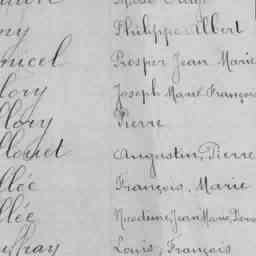 Philippe Albert
nicel Prosper Jean Marie
lory Joseph Marie François
llory Pierre
llouet Augustin, Pierre
llée François, Marie
llée Nicodème, Jean Marie
ffray Louis, François